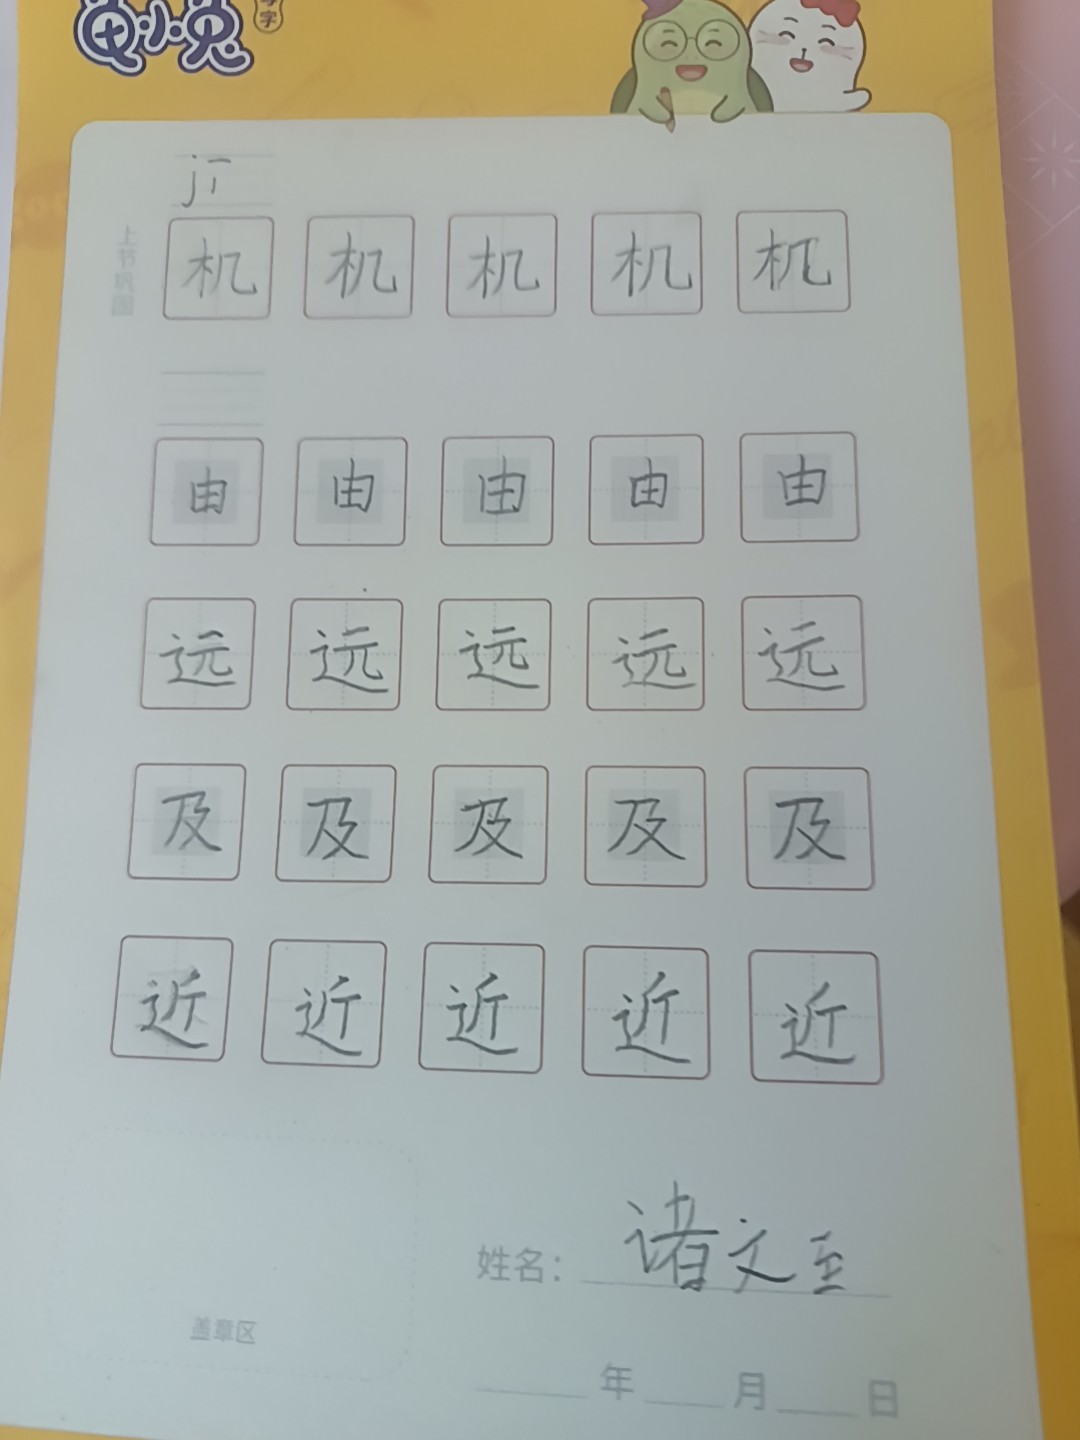 龟小兔
写字
jī
上节巩固
机 机 机 机 机
由 由 由 由 由
远 远 远 远 远
及 及 及 及 及
近 近 近 近 近
姓名：诸文至
盖章区
年 月 日